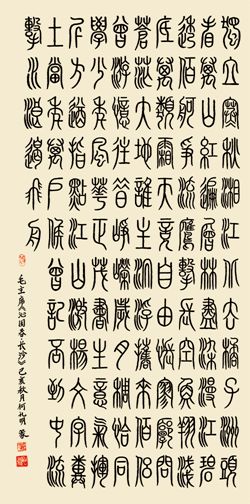 獨立寒秋湘江北去橘子洲頭
看萬山紅遍層林盡染漫江碧
透百舸爭流鷹擊長空魚翔淺
底萬類霜天競自由悵寥廓問
蒼茫大地誰主沉浮攜來百侶
曾游憶往昔崢嶸歲月稠恰同
學少年風華正茂書生意氣揮
斥方遒指點江山激揚文字糞
土當年萬戶侯曾記否到中流
擊水浪遏飛舟
毛主席《沁园春·长沙》己亥秋月何明篆